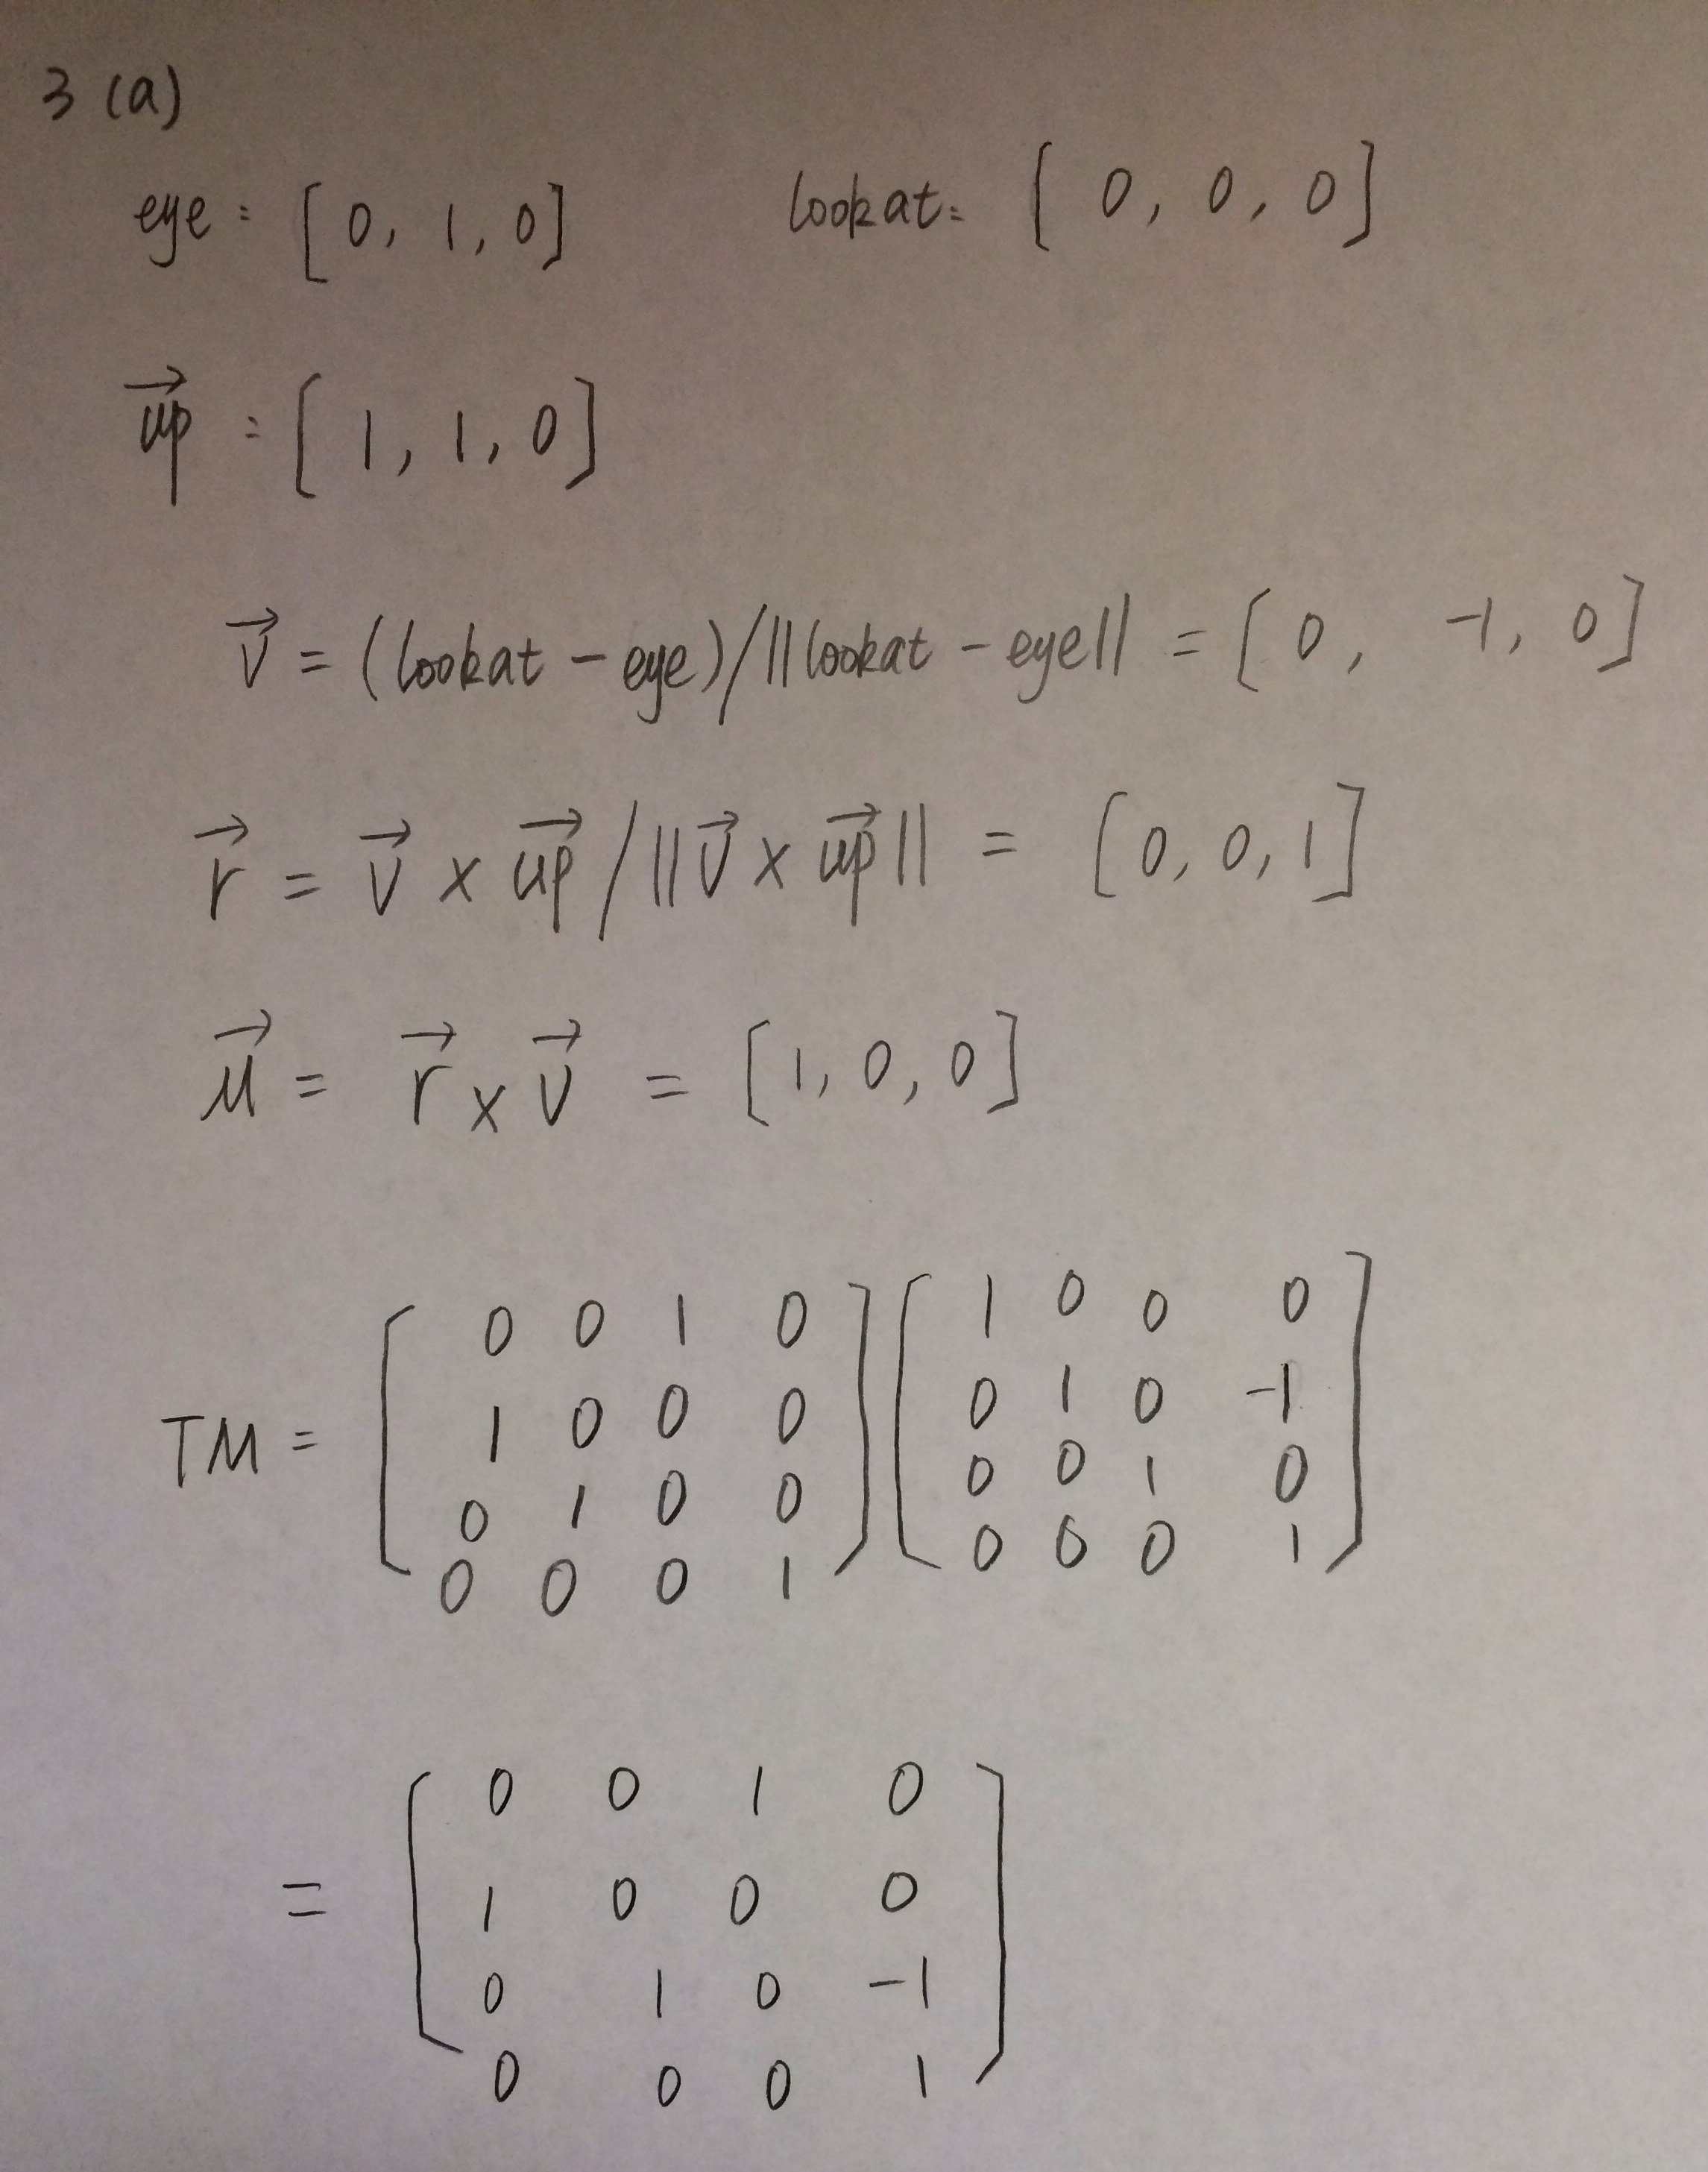 3 (a)
eye = [0, 1, 0] lookat = [0, 0, 0]
\vec{up} = [1, 1, 0]
\vec{v} = (lookat - eye)/||lookat - eye|| = [0, -1, 0]
\vec{r} = \vec{v} × \vec{up} / ||\vec{v} × \vec{up}|| = [0, 0, 1]
\vec{u} = \vec{r} × \vec{v} = [1, 0, 0]
0 0 1 0 1 0 0 0
TM = 1 0 0 0 0 1 0 -1
0 1 0 0 0 0 1 0
0 0 0 1 0 0 0 1
0 0 1 0
= 1 0 0 0
0 1 0 -1
0 0 0 1